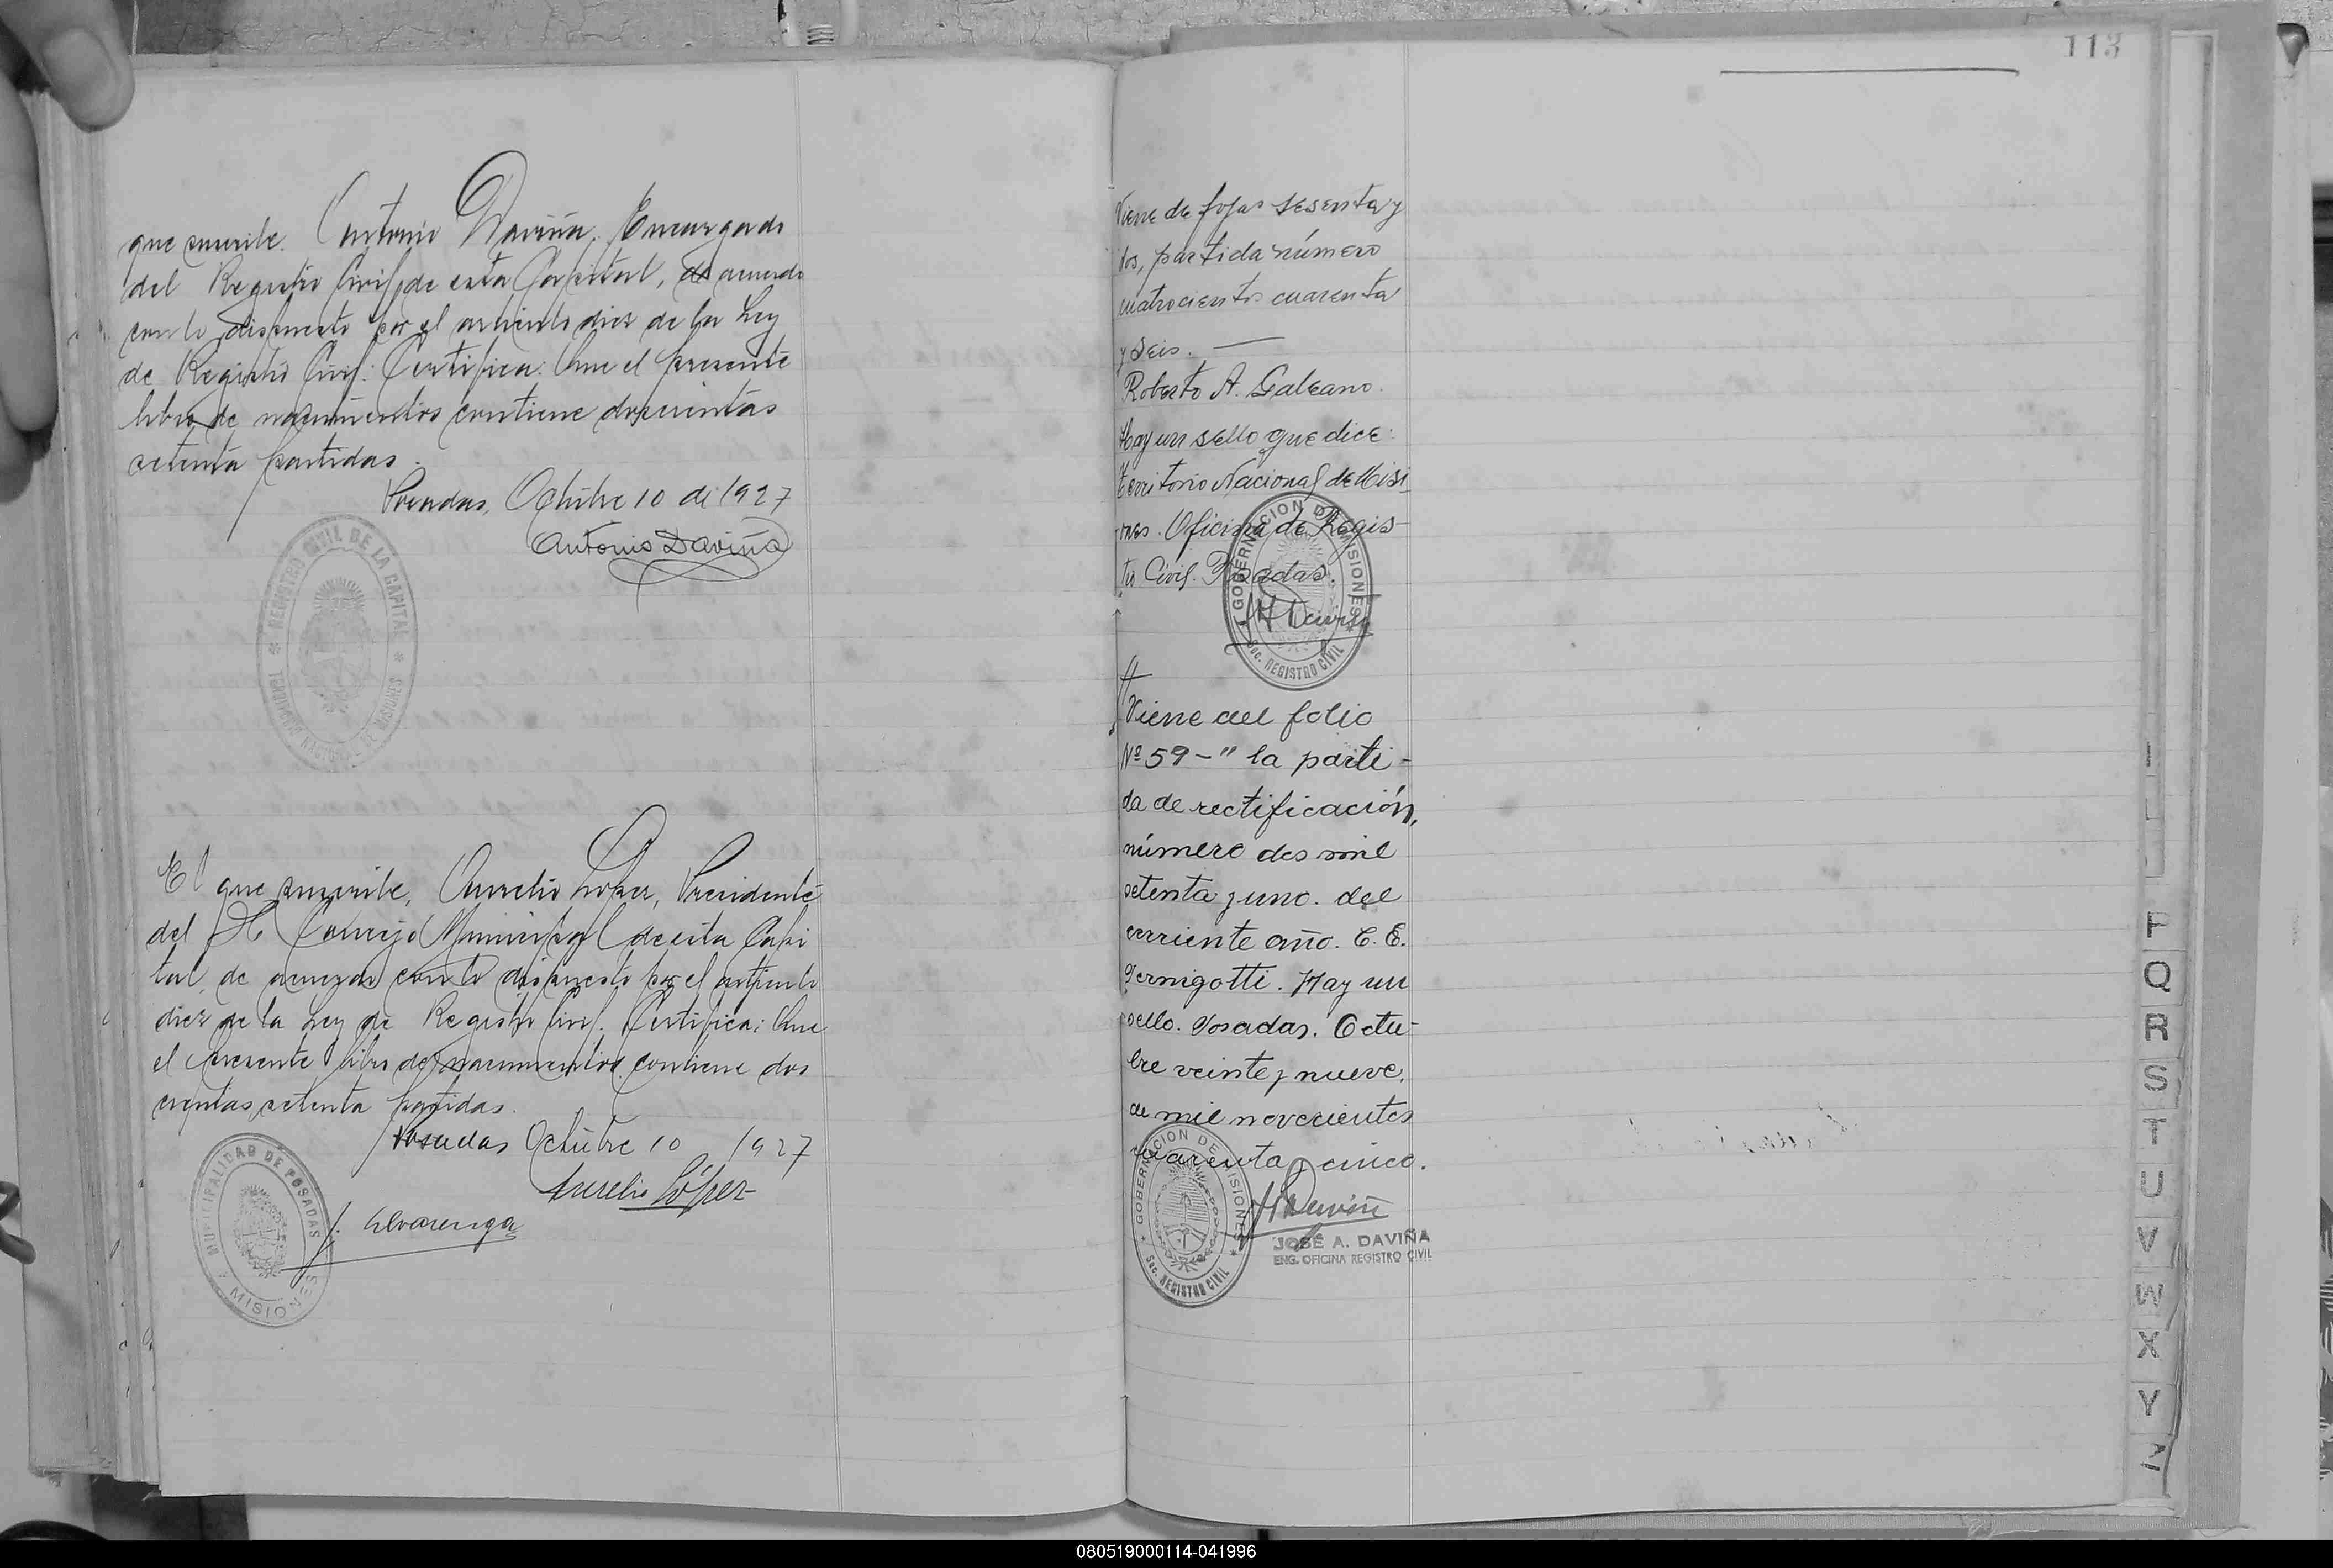 que suscribe. Antonio Daviña, Encargado
del Registro Civil de esta Capital, de acuerdo
con lo dispuesto por el articulo diez de la Ley
de Registro Civil: Certifica: Que el presente
libro de nacimientos contiene doscientas
setenta partidas.
Posadas, Octubre 10 de 1927
Antonio Daviña
REGISTRO CIVIL DE LA CAPITAL
TERRITORIO NACIONAL DE MISIONES
El que suscribe, Aurelio Lopez, Presidente
del H. Concejo Municipal de esta Capi
tal, de acuerdo con lo dispuesto por el articulo
diez de la Ley de Registro Civil. Certifica: Que
el presente libro de nacimientos contiene dos
cientas setenta partidas.
Posadas Octubre 10 1927
Aurelio López
J. Alvarenga
MUNICIPALIDAD DE POSADAS
MISIONES
113
Viene de fojas sesenta y
dos, partida número
cuatrocientos cuarenta
y seis. —
Roberto A. Galeano.
Hay un sello que dice:
Territorio Nacional de Misi
ones. Oficina de Regis-
tro Civil. Posadas.
GOBERNACION DE MISIONES
Sec. REGISTRO CIVIL
Viene del folio
Nº 59-" la parti-
da de rectificación,
número dos mil
setenta y uno. del
corriente año. C. E.
Pernigotti. Hay un
sello. Posadas. Octu-
bre veinte y nueve.
de mil novecientos
cuarenta y cinco.
GOBERNACION DE MISIONES
Sec. REGISTRO CIVIL
JOSÉ A. DAVIÑA
ENG. OFICINA REGISTRO CIVIL
P
Q
R
S
T
U
V
W
X
Y
Z
080519000114-041996